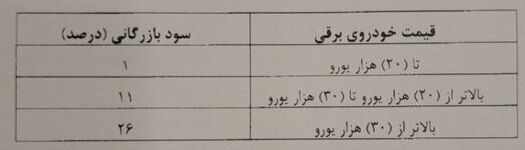 قیمت خودروی برقی	سود بازرگانی (درصد)
تا (۲۰) هزار یورو	۱
بالاتر از (۲۰) هزار یورو تا (۳۰) هزار یورو	۱۱
بالاتر از (۳۰) هزار یورو	۲۶